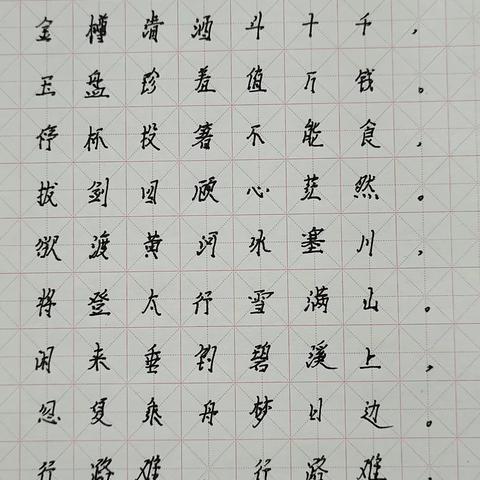 金樽清酒斗十千，
玉盘珍羞值万钱。
停杯投箸不能食，
拔剑四顾心茫然。
欲渡黄河冰塞川，
将登太行雪满山。
闲来垂钓碧溪上，
忽复乘舟梦日边。
行路难 行路难，